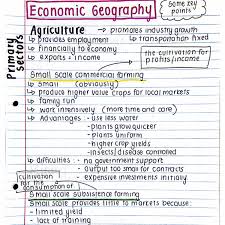 Economic Geography
Some key points
Primary sectors
Agriculture → promotes industry growth
↳ provides employment ↳ transportation fixed
↳ financially to economy
↳ exports = income
the cultivation for profits/income
Small scale commercial farming
↳ Small (obviously)
↳ produce higher value crops for local markets
↳ family run
↳ work intensively (more time and care)
↳ Advantages: - use less water
- plants grow quicker
- plants uniform
- higher crop yields
- insects/disease controlled
↳ difficulties: - no government support
- Output too small for contracts
- expensive investments initially
cultivation for the consumption of
Small scale subsistence farming
Small scale provides little to markets because:
- limited yield
- lack of training